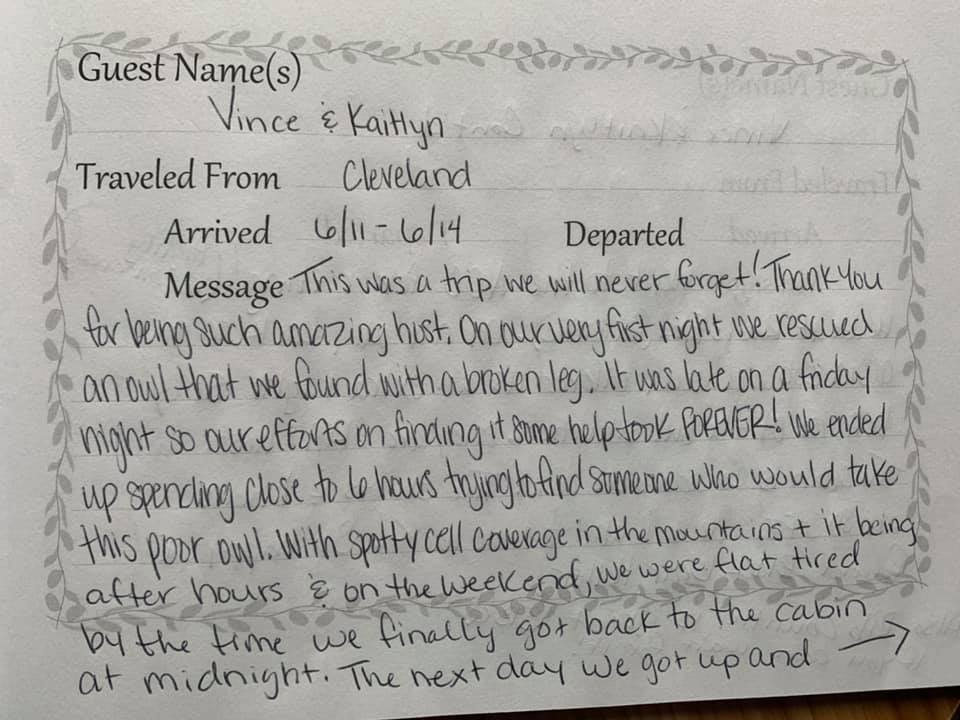 Guest Name(s)
Vince & Kaitlyn
Traveled From Cleveland
Arrived 6/11 - 6/14 Departed
Message This was a trip we will never forget! Thank You
for being such amazing host. On our very first night we rescued
an owl that we found with a broken leg. It was late on a friday
night so our efforts on finding it some help took FOREVER! We ended
up spending close to 6 hours trying to find someone who would take
this poor owl. With spotty cell coverage in the mountains + it being
after hours & on the weekend, we were flat tired
by the time we finally got back to the cabin
at midnight. The next day we got up and →